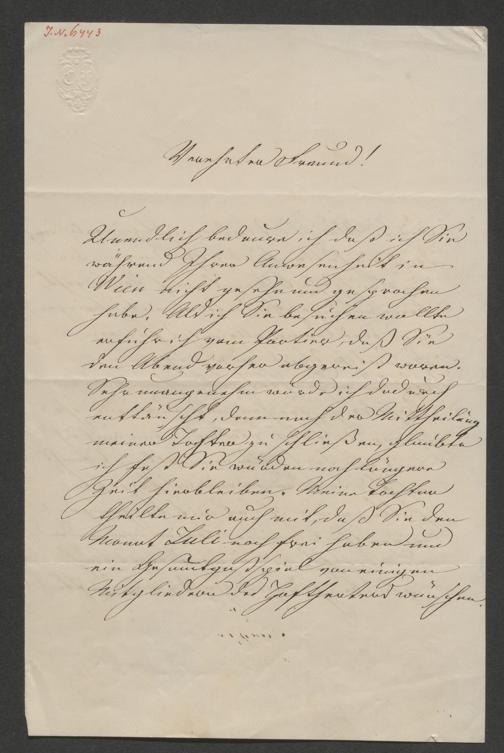 J.N. 6443
Verehrter Freund!
Unendlich bedaure ich daß ich Sie
während Ihrer Anwesenheit in
Wien nicht gesehn und gesprochen
habe. Als ich Sie besuchen wollte
erfuhr ich vom Portier, daß Sie
den Abend vorher abgereist waren.
Sehr unangenehm wurde ich dadurch
enttäuscht, denn nach der Mittheilung
meiner Tochter zu schließen, glaubte
ich fest Sie würden noch längere
Zeit hierbleiben. Meine Tochter
theilte mir auch mit, daß Sie den
Monat Juli noch frei haben und
ein Gesamtgastspiel von einigen
Mitgliedern des Hoftheaters wünschen.